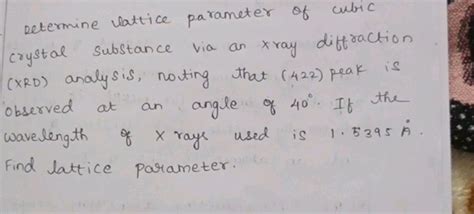 Determine lattice parameter of cubic
crystal substance via an xray diffraction
(XRD) analysis, noting that (422) peak is
observed at an angle of 40°. If the
wavelength of X rays used is 1.5395 Å.
Find lattice parameter.